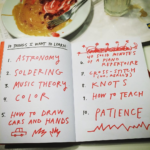 10 THINGS I WANT TO LEARN
1. ASTRONOMY
2. SOLDERING
3. MUSIC THEORY
4. COLOR
5. HOW TO DRAW
CARS AND HANDS
6.
UP SIX MINUTES
OF A PIANO
REPERTOIRE
7. CROSS-STITCH
8. KNOTS
9. HOW TO TEACH
10. PATIENCE